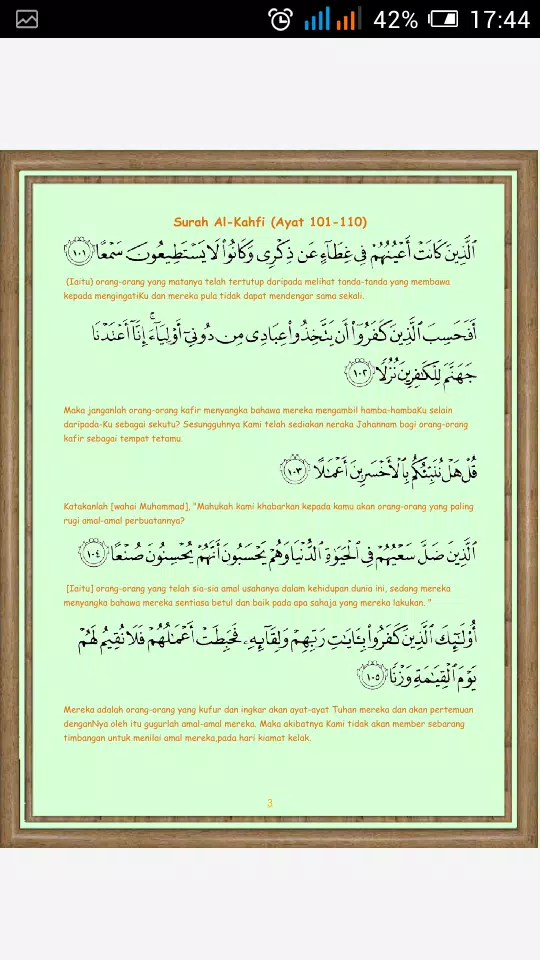 42% 17:44
Surah Al-Kahfi (Ayat 101-110)
ٱلَّذِينَ كَانَتْ أَعْيُنُهُمْ فِى غِطَآءٍ عَن ذِكْرِى وَكَانُوا۟ لَا يَسْتَطِيعُونَ سَمْعًا ١٠١
(Iaitu) orang-orang yang matanya telah tertutup daripada melihat tanda-tanda yang membawa
kepada mengingatiKu dan mereka pula tidak dapat mendengar sama sekali.
أَفَحَسِبَ ٱلَّذِينَ كَفَرُوٓا۟ أَن يَتَّخِذُوا۟ عِبَادِى مِن دُونِىٓ أَوْلِيَآءَ ۚ إِنَّآ أَعْتَدْنَا
جَهَنَّمَ لِلْكَـٰفِرِينَ نُزُلًا ١٠٢
Maka janganlah orang-orang kafir menyangka bahawa mereka mengambil hamba-hambaKu selain
daripada-Ku sebagai sekutu? Sesungguhnya Kami telah sediakan neraka Jahannam bagi orang-orang
kafir sebagai tempat tetamu.
قُلْ هَلْ نُنَبِّئُكُم بِٱلْأَخْسَرِينَ أَعْمَـٰلًا ١٠٣
Katakanlah [wahai Muhammad], "Mahukah kami khabarkan kepada kamu akan orang-orang yang paling
rugi amal-amal perbuatannya?
ٱلَّذِينَ ضَلَّ سَعْيُهُمْ فِى ٱلْحَيَوٰةِ ٱلدُّنْيَا وَهُمْ يَحْسَبُونَ أَنَّهُمْ يُحْسِنُونَ صُنْعًا ١٠٤
[Iaitu] orang-orang yang telah sia-sia amal usahanya dalam kehidupan dunia ini, sedang mereka
menyangka bahawa mereka sentiasa betul dan baik pada apa sahaja yang mereka lakukan. "
أُو۟لَـٰٓئِكَ ٱلَّذِينَ كَفَرُوا۟ بِـَٔايَـٰتِ رَبِّهِمْ وَلِقَآئِهِۦ فَحَبِطَتْ أَعْمَـٰلُهُمْ فَلَا نُقِيمُ لَهُمْ
يَوْمَ ٱلْقِيَـٰمَةِ وَزْنًا ١٠٥
Mereka adalah orang-orang yang kufur dan ingkar akan ayat-ayat Tuhan mereka dan akan pertemuan
denganNya oleh itu gugurlah amal-amal mereka. Maka akibatnya Kami tidak akan member sebarang
timbangan untuk menilai amal mereka,pada hari kiamat kelak.
3